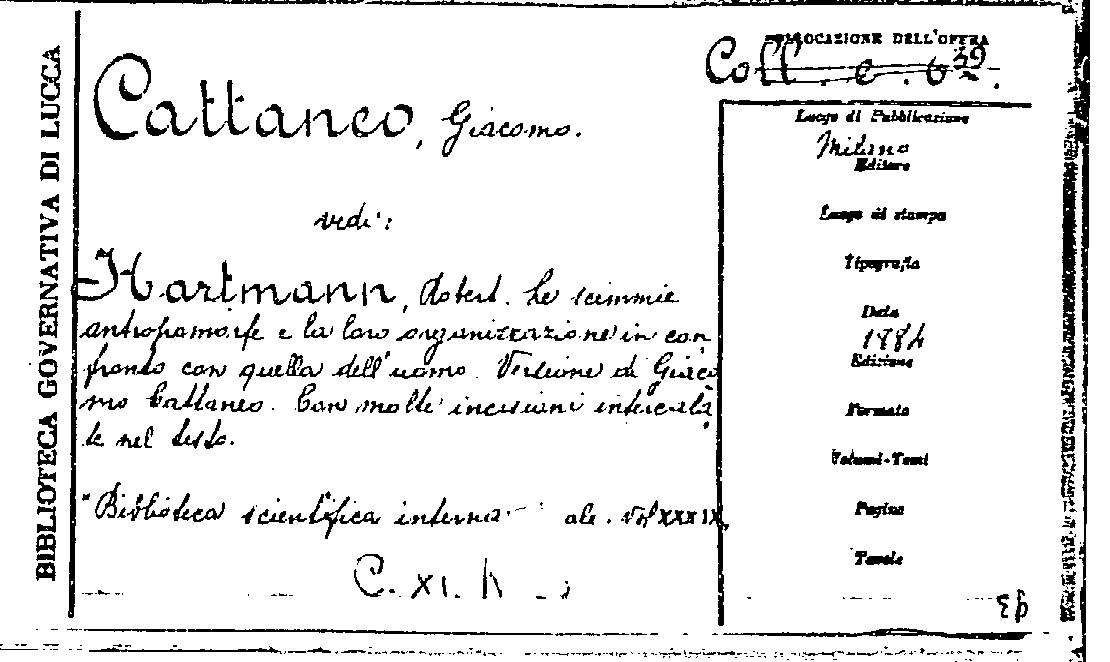 BIBLIOTECA GOVERNATIVA DI LUCCA
COLLOCAZIONE DELL'OPERA
Coll. e. 6 39
Cattaneo, Giacomo.
vedi:
Hartmann, Robert. Le scimmie
antropomorfe e la loro organizzazione in con
fronto con quella dell'uomo. Versione di Giaco
mo Cattaneo. Con molte incisioni intercala
te nel testo.
"Biblioteca scientifica interna ale. Vol XXXIX,
C. XI.
Luogo di Pubblicazione
Milano
Editore
Luogo di stampa
Tipografia
Data
1884
Edizione
Formato
Volumi-Tomi
Pagine
Tavole